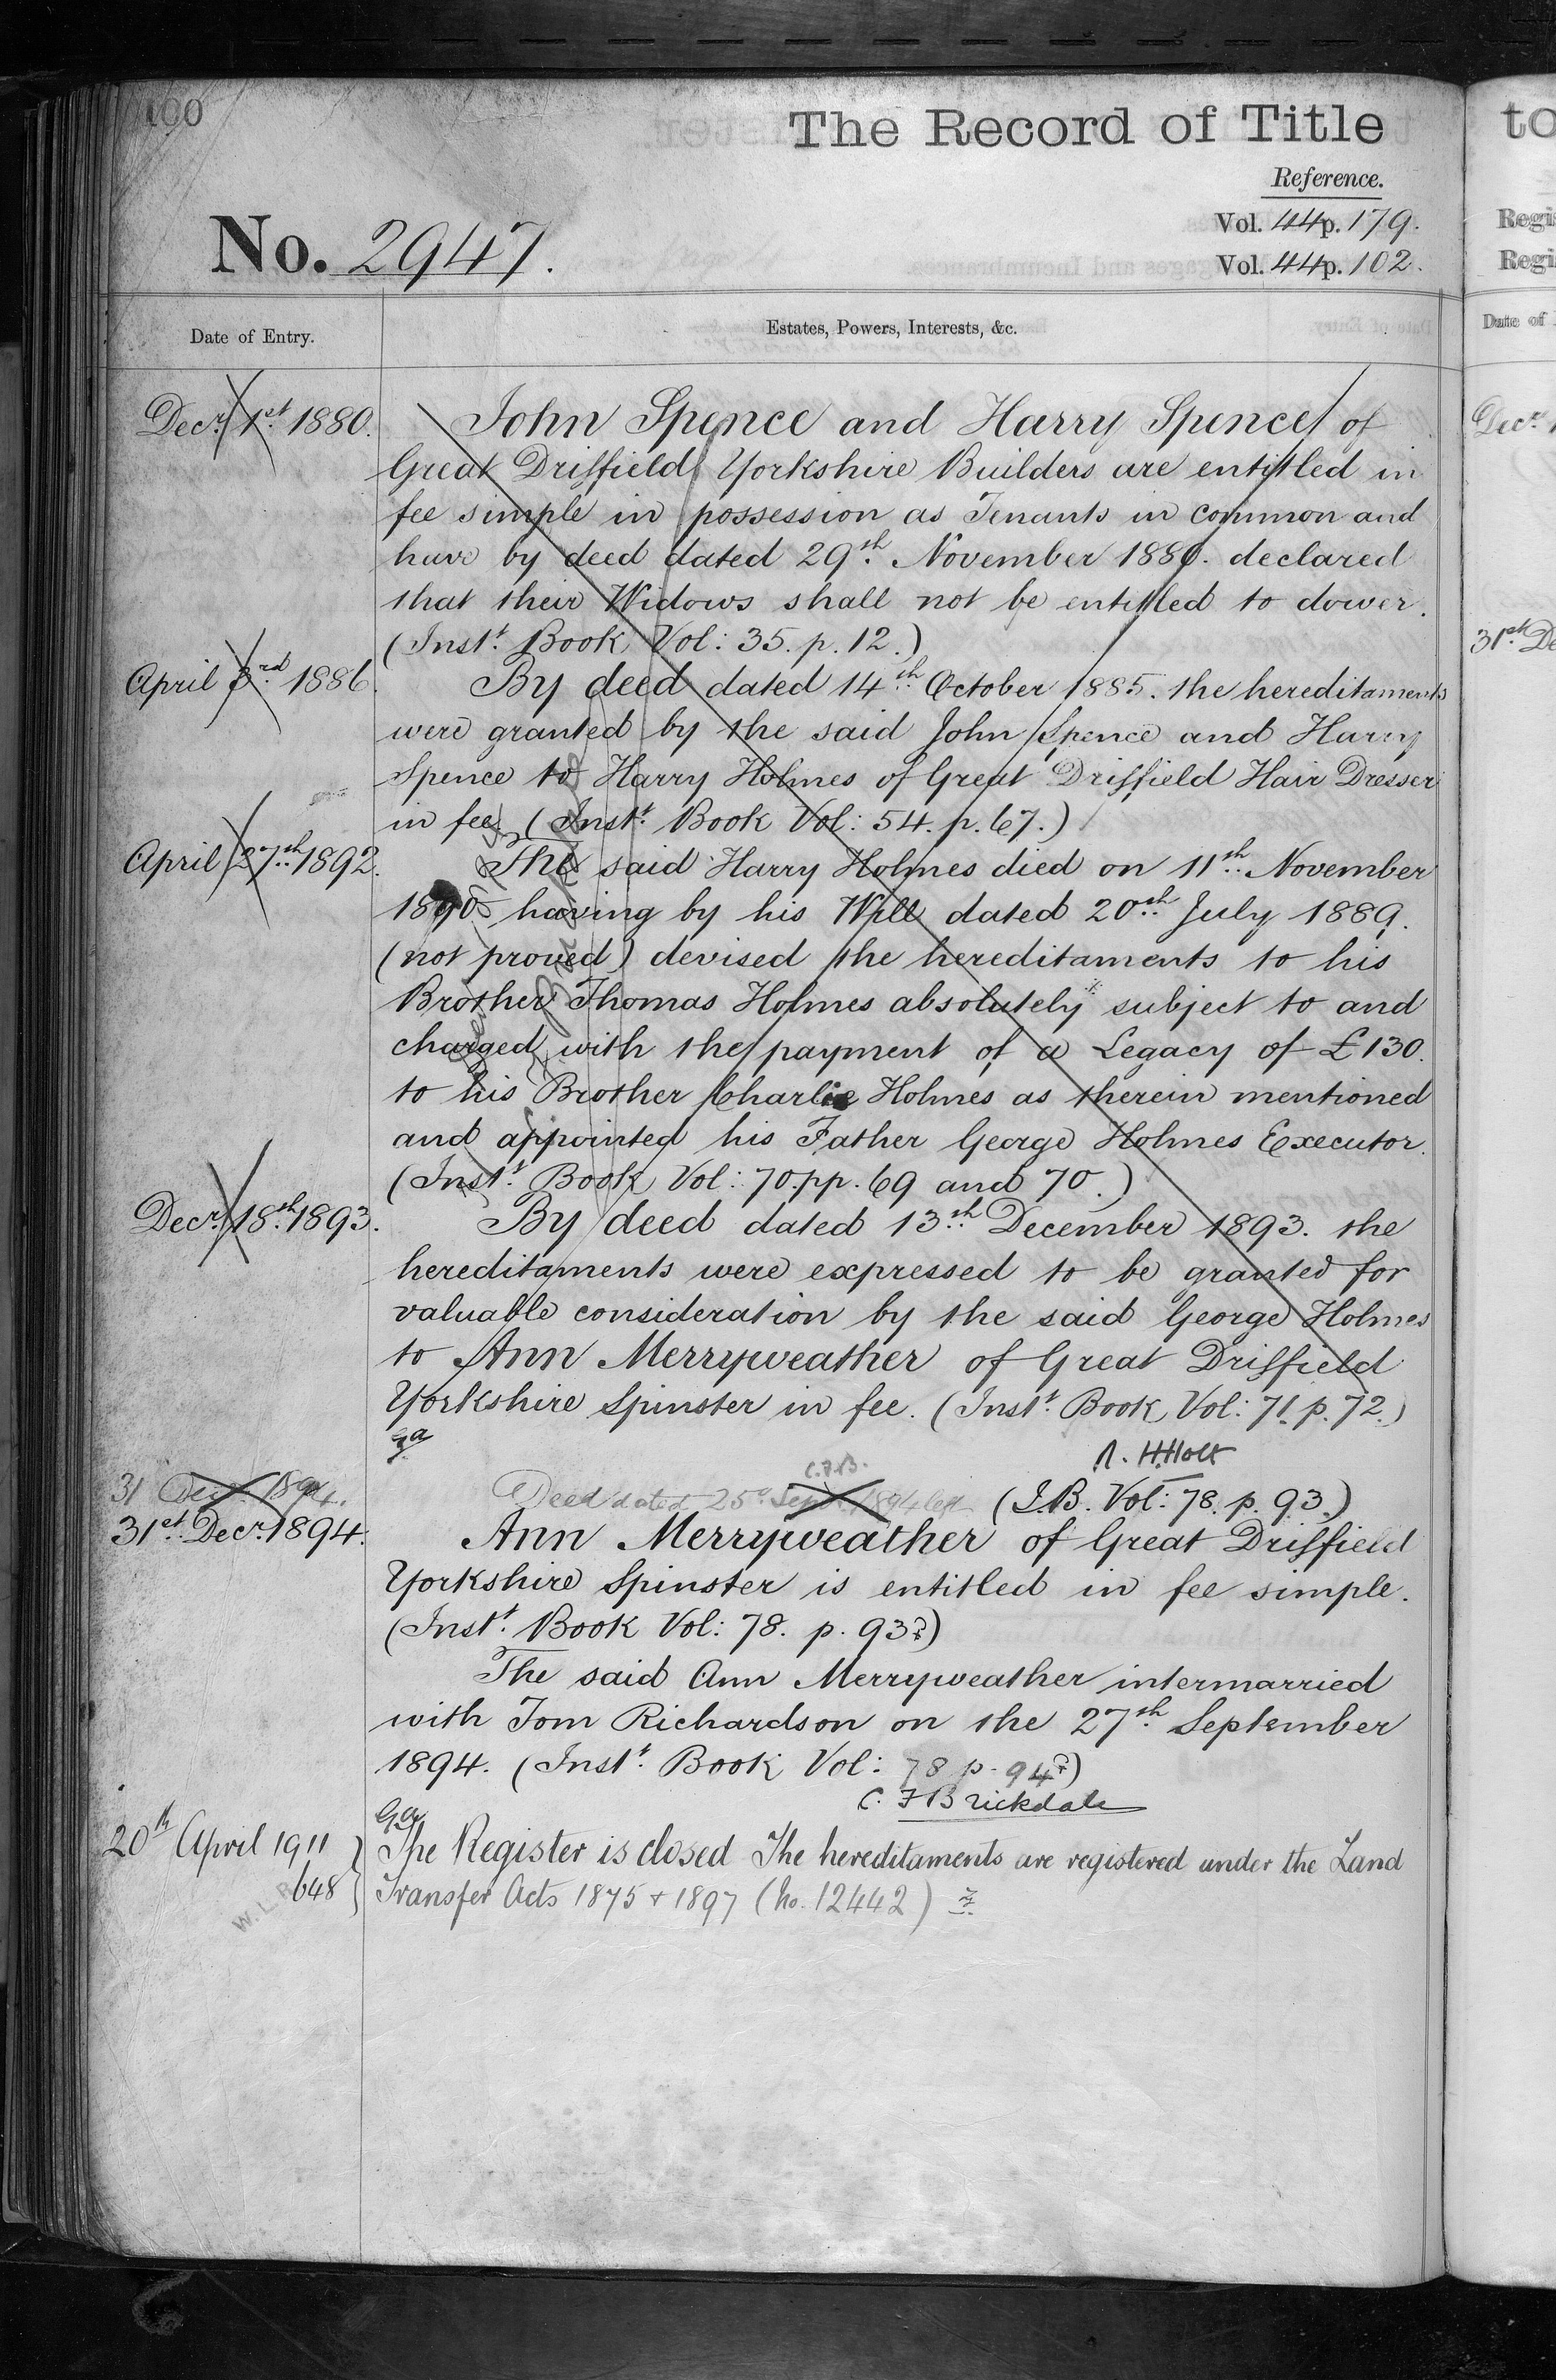 100
The Record of Title
Reference.
No. 2947.
Vol. 44 p. 179.
Vol. 44 p. 102.
Date of Entry.
Estates, Powers, Interests, &c.
Decr. 1st. 1880.
John Spence and Harry Spence of
Great Driffield Yorkshire Builders are entitled in
fee simple in possession as Tenants in common and
have by deed dated 29th. November 1880. declared
that their Widows shall not be entitled to dower.
(Instt. Book Vol: 35. p. 12.)
April 3rd. 1886.
By deed dated 14th. October 1885. the hereditaments
were granted by the said John Spence and Harry
Spence to Harry Holmes of Great Driffield Hair Dresser
in fee. (Instt. Book Vol: 54. p. 67.)
April 27th. 1892.
The said Harry Holmes died on 11th. November
1890 having by his Will dated 20th. July 1889.
(not proved) devised the hereditaments to his
Brother Thomas Holmes absolutely subject to and
charged with the payment of a Legacy of £130.
to his Brother Charlie Holmes as therein mentioned
and appointed his Father George Holmes Executor.
(Instt. Book Vol: 70. pp. 69 and 70.)
Decr. 18th. 1893.
By deed dated 13th. December 1893. the
hereditaments were expressed to be granted for
valuable consideration by the said George Holmes
to Ann Merryweather of Great Driffield
Yorkshire Spinster in fee. (Instt. Book Vol: 71. p. 72.)
R. H. Holt
C.F.B.
31 Decr. 1894.
Deed dated 25 Sepr. 1894 (I.B. Vol: 78. p. 93.)
31st. Decr. 1894.
Ann Merryweather of Great Driffield
Yorkshire Spinster is entitled in fee simple.
(Instt. Book Vol: 78. p. 93)
The said Ann Merryweather intermarried
with Tom Richardson on the 27th. September
1894. (Instt. Book Vol: 78 p. 94)
C. F Brickdale
20th April 1911
648
The Register is closed The hereditaments are registered under the Land
Transfer Acts 1875 & 1897 (No. 12442)
W.L.R
to
Regis
Regi
Date of
Decr. 1
31st. De